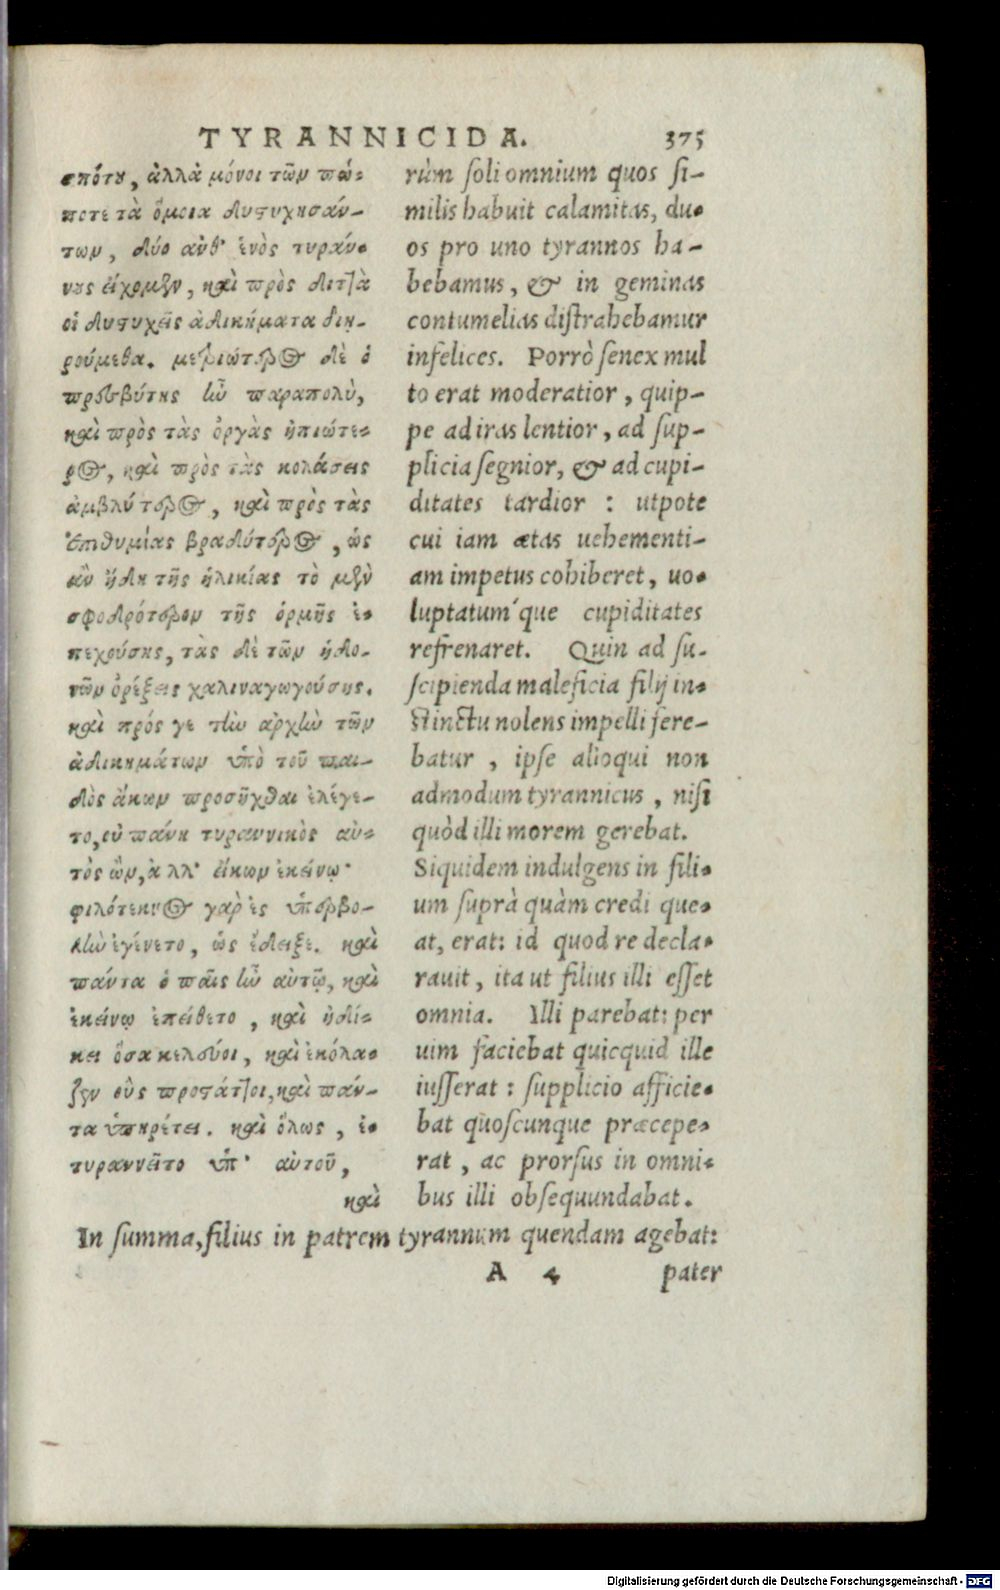 TYRANNICIDA. 375
σπότȣ, ἀλλὰ μόνοι τῶν πώ-
ποτε τὰ ὅμοια δυςυχησάν-
των, δύο ἀνθ' ἑνὸς τυράν-
νȣς εἴχομεν, καὶ πρὸς διττὰ
οἱ δυςυχεῖς ἀδικήματα διῃ-
ρούμεθα. μετριώτερος δὲ ὁ
πρεσβύτης ἦν παραπολὺ,
καὶ πρὸς τὰς ὀργὰς ἠπιώτε-
ρος, καὶ πρὸς τὰς κολάσεις
ἀμβλύτερος, καὶ πρὸς τὰς
ἐπιθυμίας βραδύτερος, ὡς
ἂν ἤδη τῆς ἡλικίας τὸ μὲν
σφοδρότερον τῆς ὁρμῆς ἐ-
πεχούσης, τὰς δὲ τῶν ἡδο-
νῶν ὀρέξεις χαλιναγωγούσης.
καὶ πρός γε τὴν ἀρχὴν τῶν
ἀδικημάτων ὑπὸ τοῦ παι-
δὸς ἄκων προσῆχθαι ἐλέγε-
το, οὐ πάνυ τυραννικὸς αὐ-
τὸς ὢν, ἀλλ' εἴκων ἐκείνῳ·
φιλότεκνος γὰρ ἐς ὑπερβο-
λὴν ἐγένετο, ὡς ἔδειξε. καὶ
πάντα ὁ παῖς ἦν αὐτῷ, καὶ
ἐκείνῳ ἐπείθετο, καὶ ἠδί-
κει ὅσα κελεύοι, καὶ ἐκόλα-
ζεν οὓς προςάττοι, καὶ πάν-
τα ὑπηρέτει. καὶ ὅλως, ἐ-
τυραννεῖτο ὑπ' αὐτοῦ,
καὶ
rùm ſoli omnium quos ſi-
milis habuit calamitas, du-
os pro uno tyrannos ha-
bebamus, & in geminas
contumelias diſtrahebamur
infelices. Porrò ſenex mul
to erat moderatior, quip-
pe ad iras lentior, ad ſup-
plicia ſegnior, & ad cupi-
ditates tardior : utpote
cui iam ætas uehementi-
am impetus cohiberet, uo-
luptatum´que cupiditates
refrenaret. Quin ad ſu-
ſcipienda maleficia filij in-
ſtinctu nolens impelli fere-
batur, ipſe alioqui non
admodum tyrannicus, niſi
quòd illi morem gerebat.
Siquidem indulgens in fili-
um ſuprà quàm credi que-
at, erat: id quod re decla-
rauit, ita ut filius illi eſſet
omnia. Illi parebat: per
uim faciebat quicquid ille
iuſſerat : ſupplicio afficie-
bat quoſcunque præcepe-
rat, ac prorſus in omni-
bus illi obſequundabat.
In ſumma, filius in patrem tyrannum quendam agebat:
A 4 pater
Digitalisierung gefördert durch die Deutsche Forschungsgemeinschaft - DFG